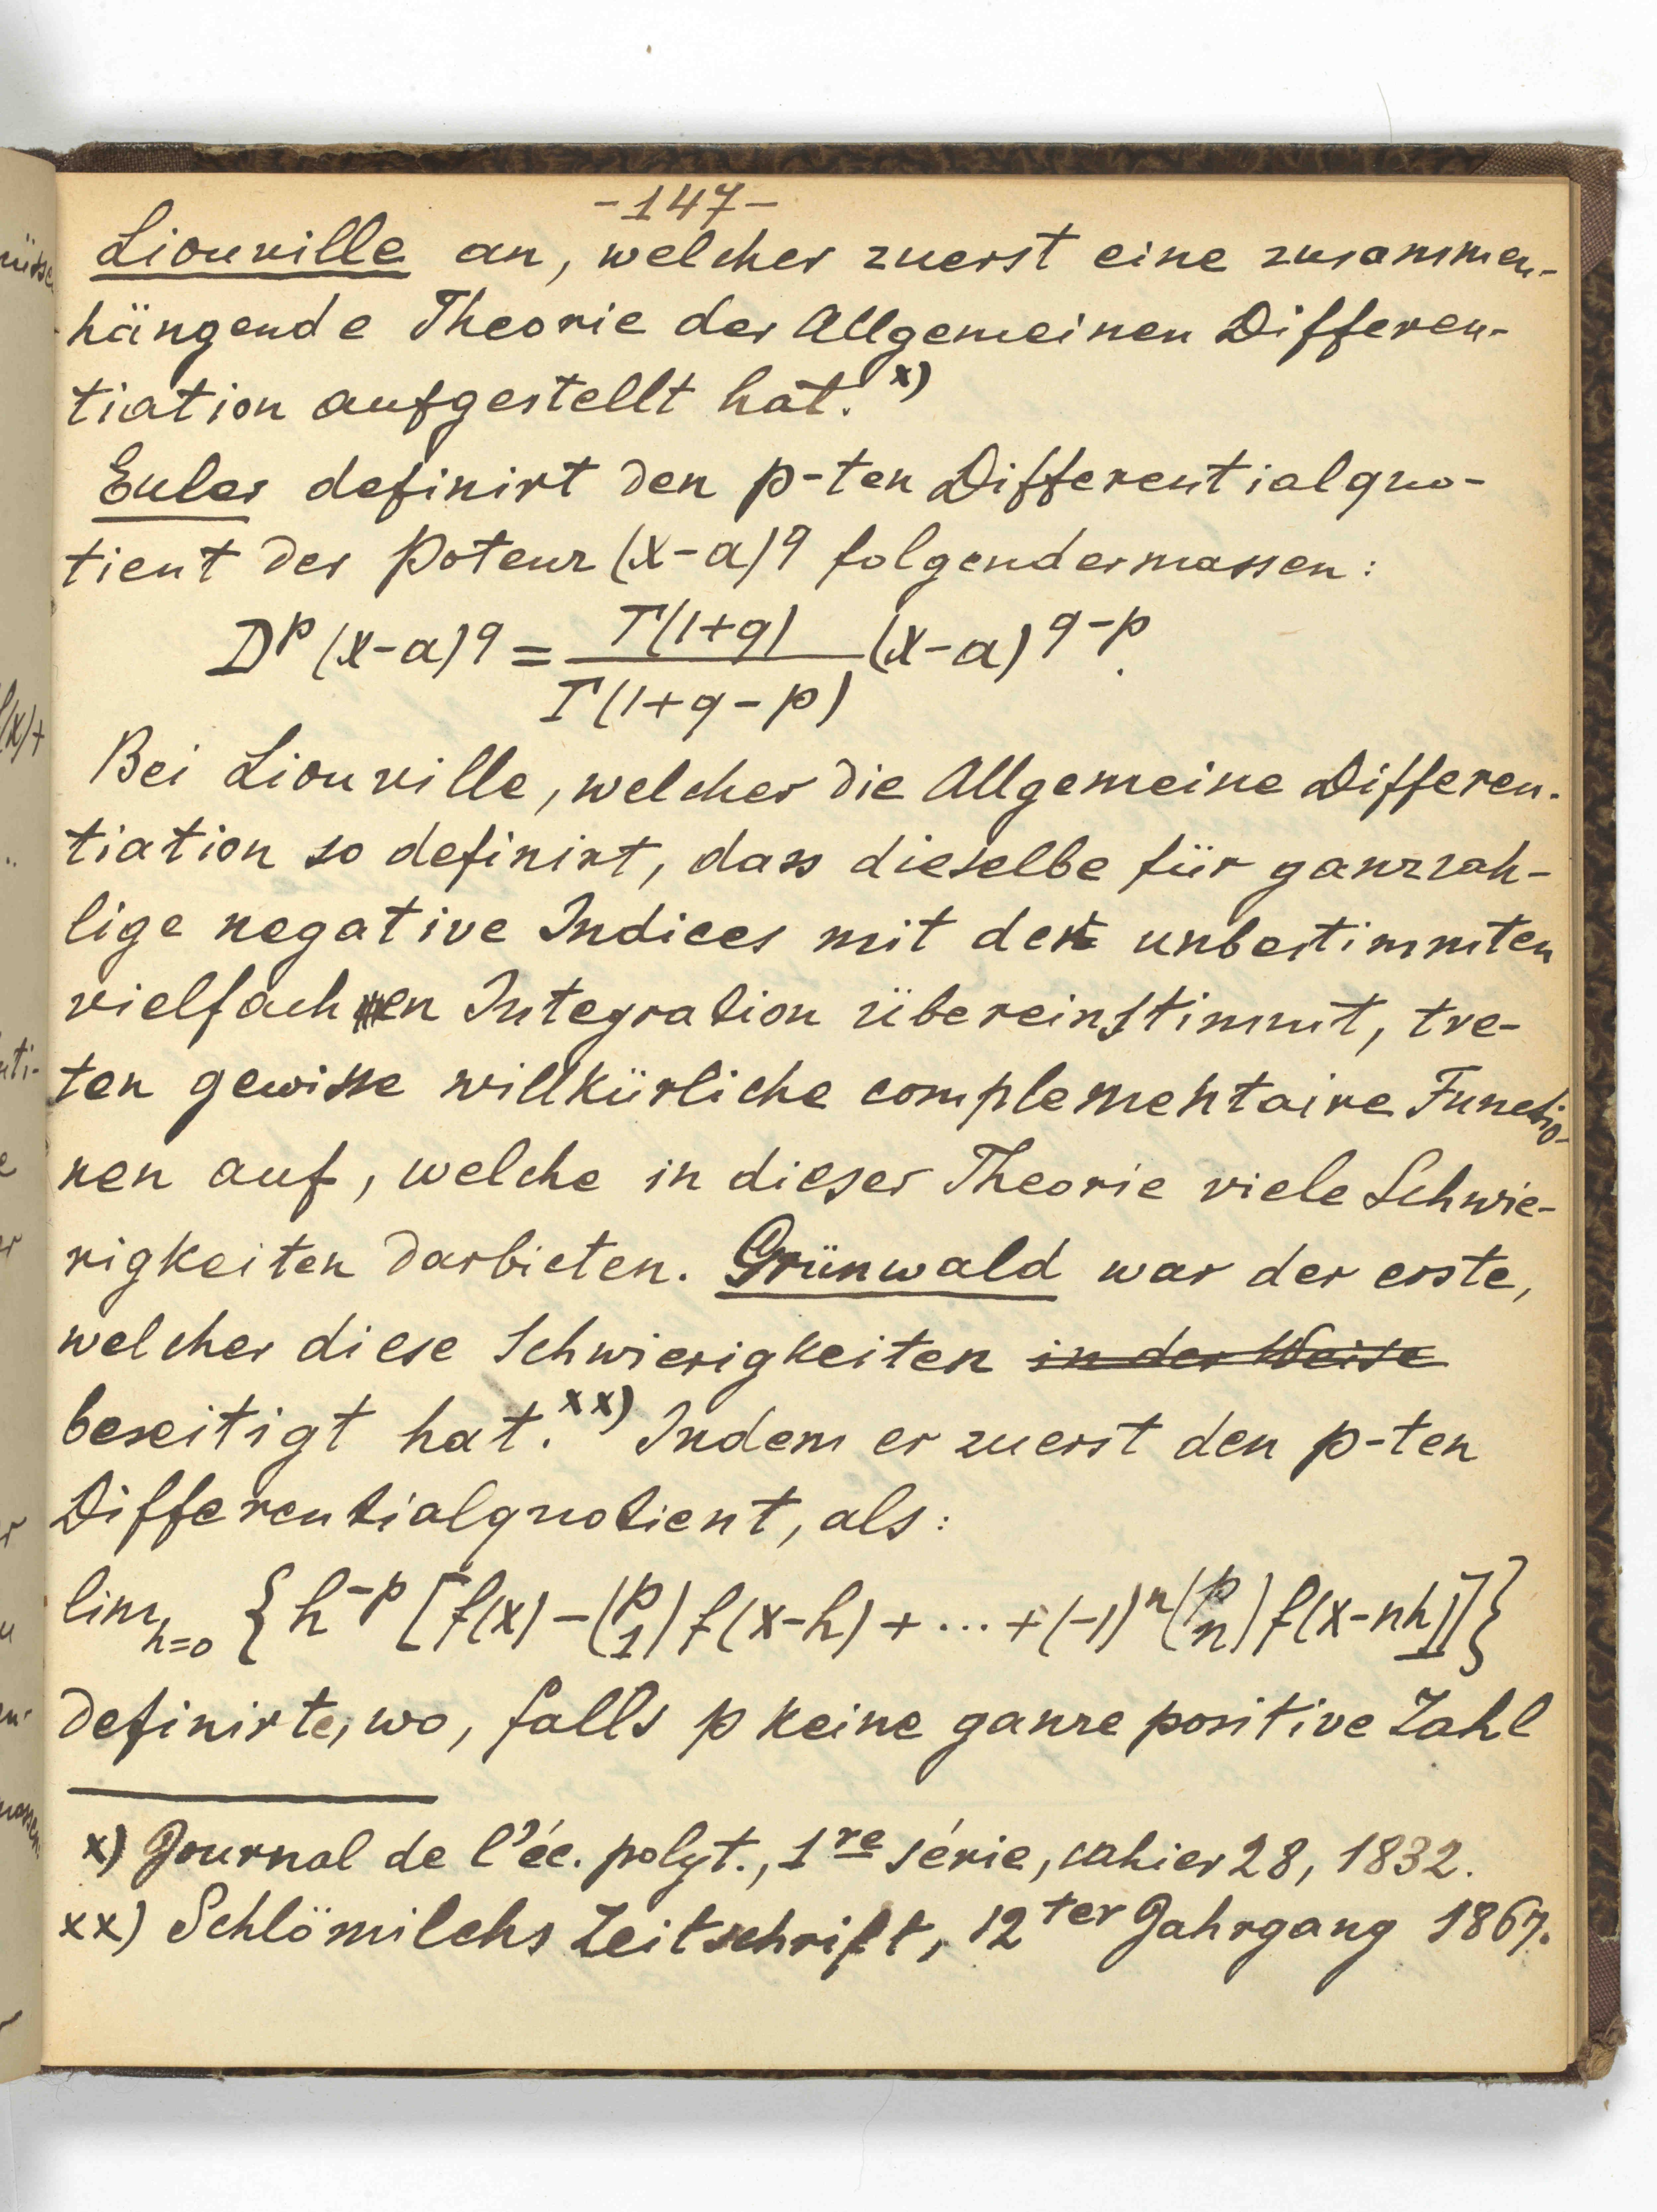 -147-
Liouville an, welcher zuerst eine zusammen-
hängende Theorie der Allgemeinen Differen-
tiation aufgestellt hat. x)
Euler definirt den p-ten Differentialquo-
tient der Potenz (x-a)^q folgendermassen:
D^p (x-a)^q = Γ(1+q) / Γ(1+q-p) (x-a)^{q-p}.
Bei Liouville, welcher die Allgemeine Differen-
tiation so definirt, dass dieselbe für ganzzah-
lige negative Indices mit der unbestimmten
vielfachen Integration übereinstimmt, tre-
ten gewisse willkürliche complementaire Functio-
nen auf, welche in dieser Theorie viele Schwie-
rigkeiten darbieten. Grünwald war der erste,
welcher diese Schwierigkeiten in der Weise
beseitigt hat. xx) Indem er zuerst den p-ten
Differentialquotient, als:
lim_{h=0} {h^{-p} [f(x) - (p 1) f(x-h) + ... + (-1)^n (p n) f(x-nh)]}
definirte, wo, falls p keine ganze positive Zahl
x) Journal de l'éc. polyt., 1re série, cahier 28, 1832.
xx) Schlömilchs Zeitschrift, 12ter Jahrgang 1867.